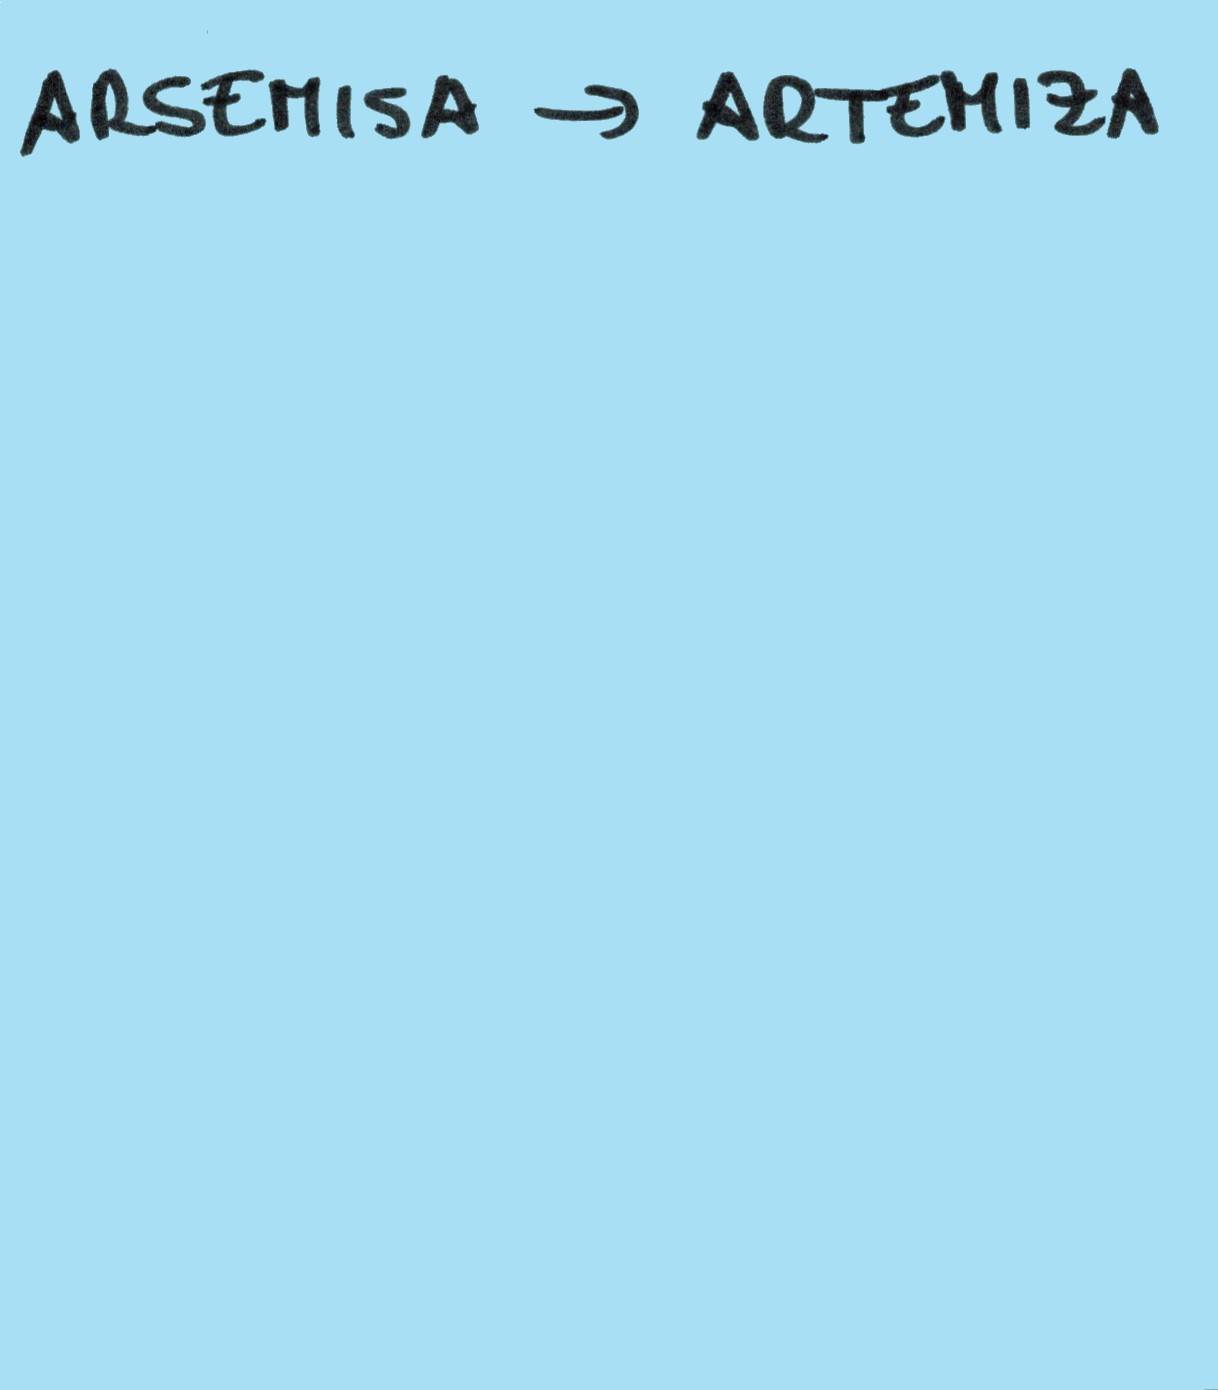 ARSEMISA → ARTEMIZA